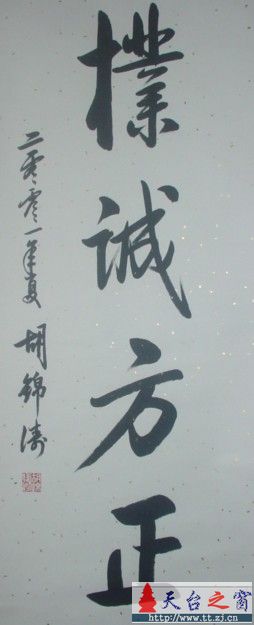 樸诚方正
二零零一年夏 胡錦涛
天台之窗
http://www.tt.zj.cn